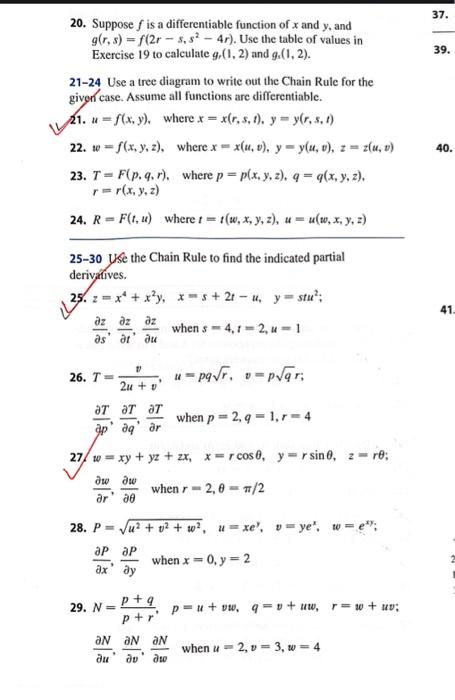 20. Suppose f is a differentiable function of x and y, and
g(r, s) = f(2r − s, s² − 4r). Use the table of values in
Exercise 19 to calculate gᵣ(1, 2) and gₛ(1, 2).
21–24 Use a tree diagram to write out the Chain Rule for the
given case. Assume all functions are differentiable.
21. u = f(x, y), where x = x(r, s, t), y = y(r, s, t)
22. w = f(x, y, z), where x = x(u, v), y = y(u, v), z = z(u, v)
23. T = F(p, q, r), where p = p(x, y, z), q = q(x, y, z),
r = r(x, y, z)
24. R = F(t, u) where t = t(w, x, y, z), u = u(w, x, y, z)
25–30 Use the Chain Rule to find the indicated partial
derivatives.
25. z = x⁴ + x²y, x = s + 2t − u, y = stu²;
∂z/∂s, ∂z/∂t, ∂z/∂u when s = 4, t = 2, u = 1
26. T = v/(2u + v), u = pq√r, v = p√q r;
∂T/∂p, ∂T/∂q, ∂T/∂r when p = 2, q = 1, r = 4
27. w = xy + yz + zx, x = r cos θ, y = r sin θ, z = rθ;
∂w/∂r, ∂w/∂θ when r = 2, θ = π/2
28. P = √(u² + v² + w²), u = xeʸ, v = yeˣ, w = eˣʸ;
∂P/∂x, ∂P/∂y when x = 0, y = 2
29. N = (p + q)/(p + r), p = u + vw, q = v + uw, r = w + uv;
∂N/∂u, ∂N/∂v, ∂N/∂w when u = 2, v = 3, w = 4
37.
39.
40.
41.